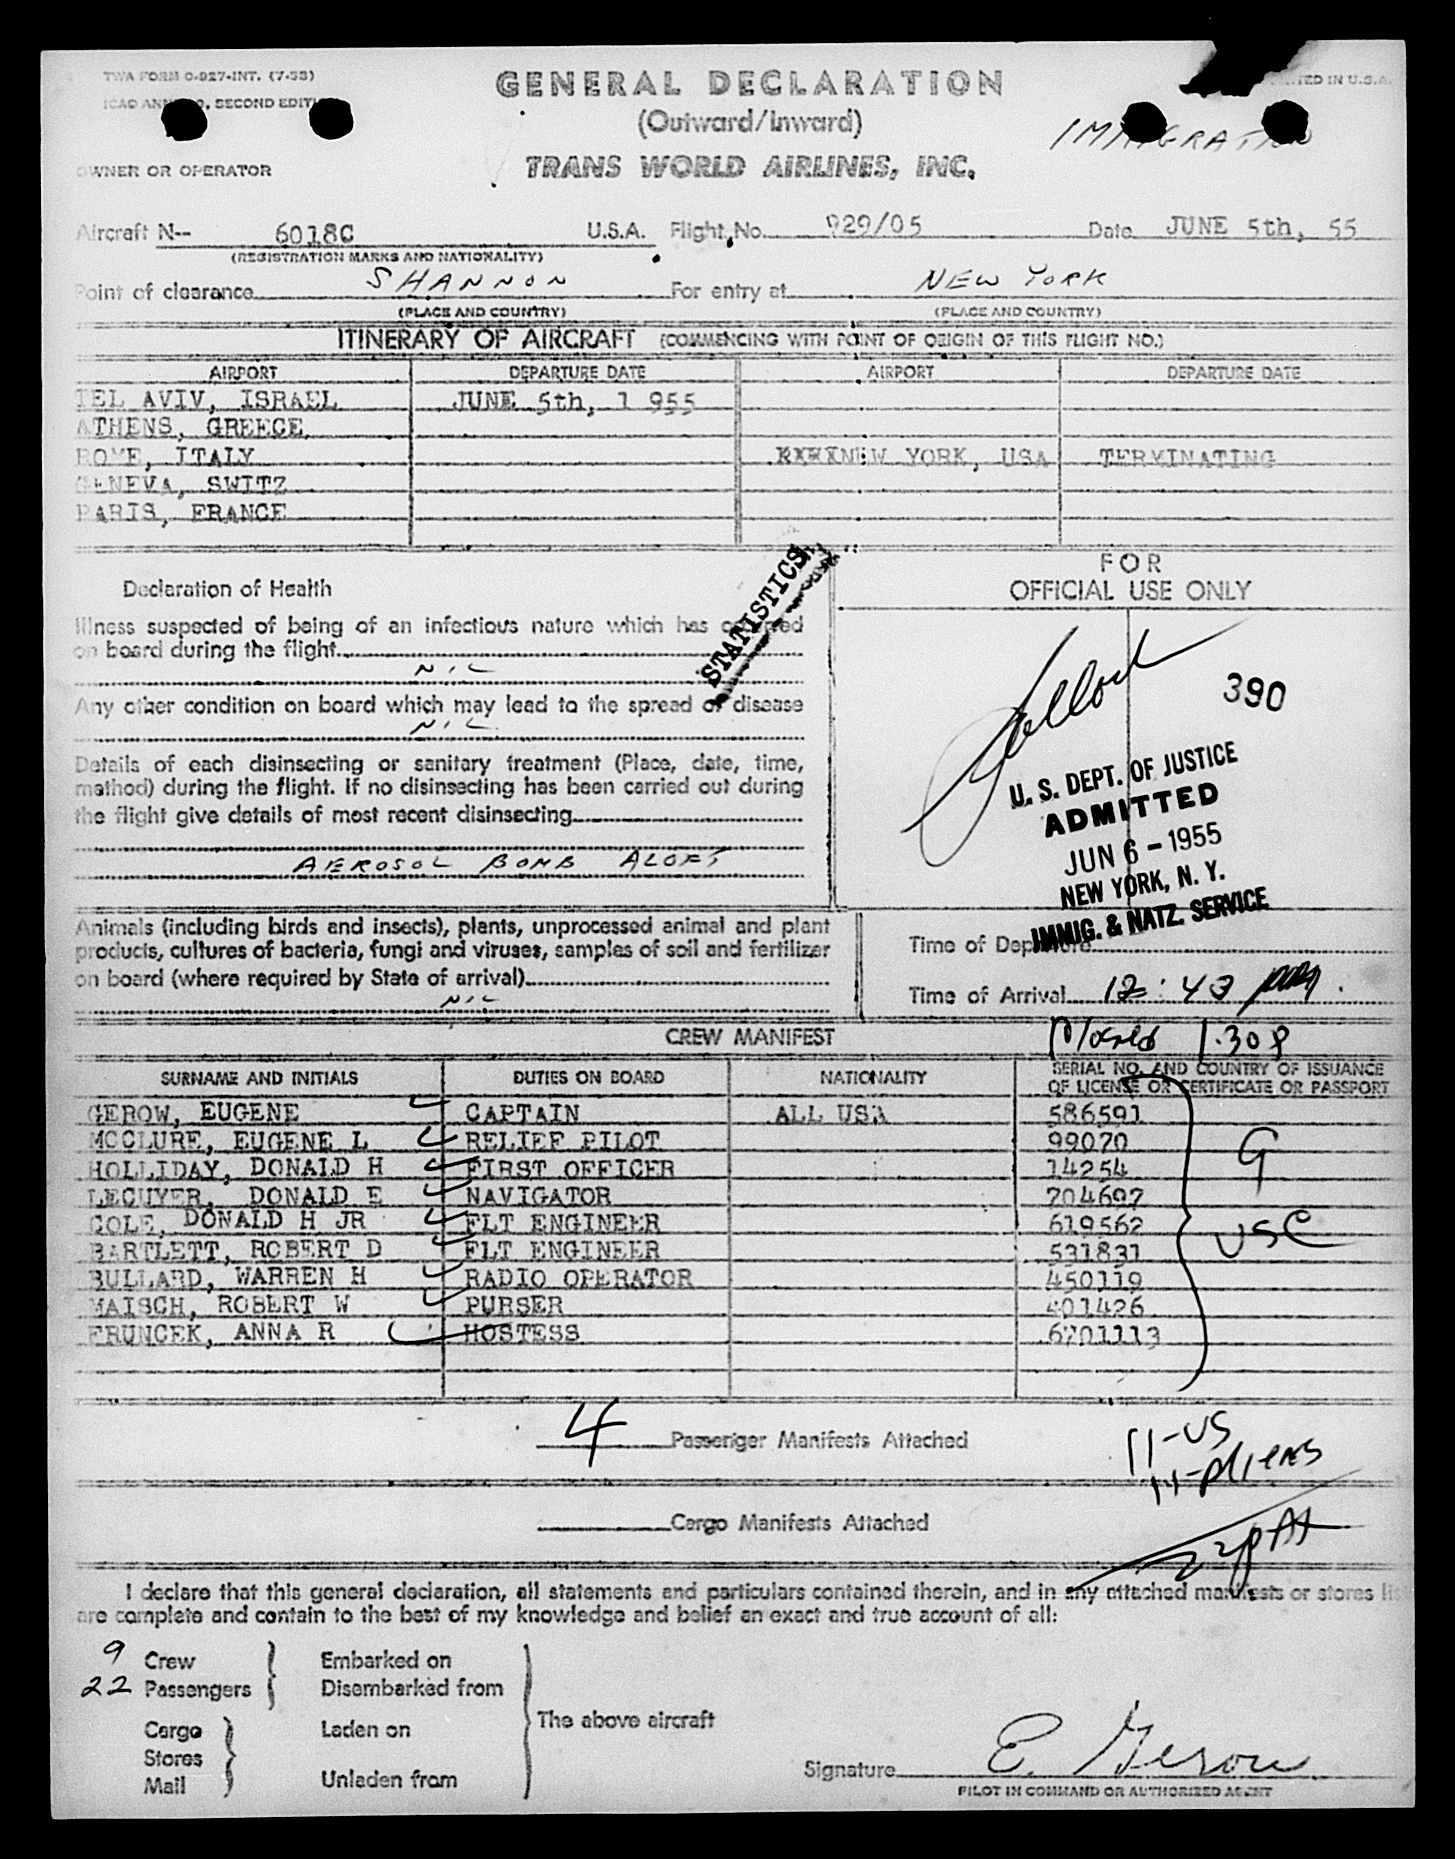 TWA FORM O-927-INT. (7-53)
GENERAL DECLARATION
IN U.S.A.
SECOND
(Outward/Inward)
IMMIGRATION
OWNER OR OPERATOR
TRANS WORLD AIRLINES, INC.
Aircraft N-- 6018C U.S.A. Flight No. 929/05 Date JUNE 5th, 55
(REGISTRATION MARKS AND NATIONALITY)
Point of clearance SHANNON For entry at NEW YORK
(PLACE AND COUNTRY) (PLACE AND COUNTRY)
ITINERARY OF AIRCRAFT (COMMENCING WITH POINT OF ORIGIN OF THIS FLIGHT NO.)
AIRPORT DEPARTURE DATE AIRPORT DEPARTURE DATE
TEL AVIV, ISRAEL JUNE 5th, 1 955
ATHENS, GREECE
ROME, ITALY NEW YORK, USA TERMINATING
GENEVA, SWITZ
PARIS, FRANCE
FOR
OFFICIAL USE ONLY
STATISTICS
Declaration of Health
Illness suspected of being of an infectious nature which has occurred
on board during the flight
NIL
Any other condition on board which may lead to the spread of disease
NIL
Details of each disinsecting or sanitary treatment (Place, date, time,
method) during the flight. If no disinsecting has been carried out during
the flight give details of most recent disinsecting
AEROSOL BOMB ALOFT
390
U. S. DEPT. OF JUSTICE
ADMITTED
JUN 6 - 1955
NEW YORK, N. Y.
IMMIG. & NATZ. SERVICE
Animals (including birds and insects), plants, unprocessed animal and plant
products, cultures of bacteria, fungi and viruses, samples of soil and fertilizer
on board (where required by State of arrival)
NIL
Time of Departure
Time of Arrival 12:43 pm.
CREW MANIFEST
1:30 P
SURNAME AND INITIALS DUTIES ON BOARD NATIONALITY SERIAL NO. AND COUNTRY OF ISSUANCE
OF LICENSE OR CERTIFICATE OR PASSPORT
GEROW, EUGENE CAPTAIN ALL USA 586591
MCCLURE, EUGENE L RELIEF PILOT 99070
HOLLIDAY, DONALD H FIRST OFFICER 14254
LECUYER, DONALD E NAVIGATOR 704697
COLE, DONALD H JR FLT ENGINEER 619562
BARTLETT, ROBERT D FLT ENGINEER 531831
BULLARD, WARREN H RADIO OPERATOR 450119
MAISCH, ROBERT W PURSER 401426
FRUNCEK, ANNA R HOSTESS 6701113
G
USC
4 Passenger Manifests Attached
11-US
11-Aliens
Cargo Manifests Attached
I declare that this general declaration, all statements and particulars contained therein, and in any attached manifests or stores
are complete and contain to the best of my knowledge and belief an exact and true account of all:
9 Crew Embarked on
22 Passengers Disembarked from
The above aircraft
Cargo Laden on
Stores
Mail Unladen from
Signature E. Gerow
PILOT IN COMMAND OR AUTHORIZED AGENT